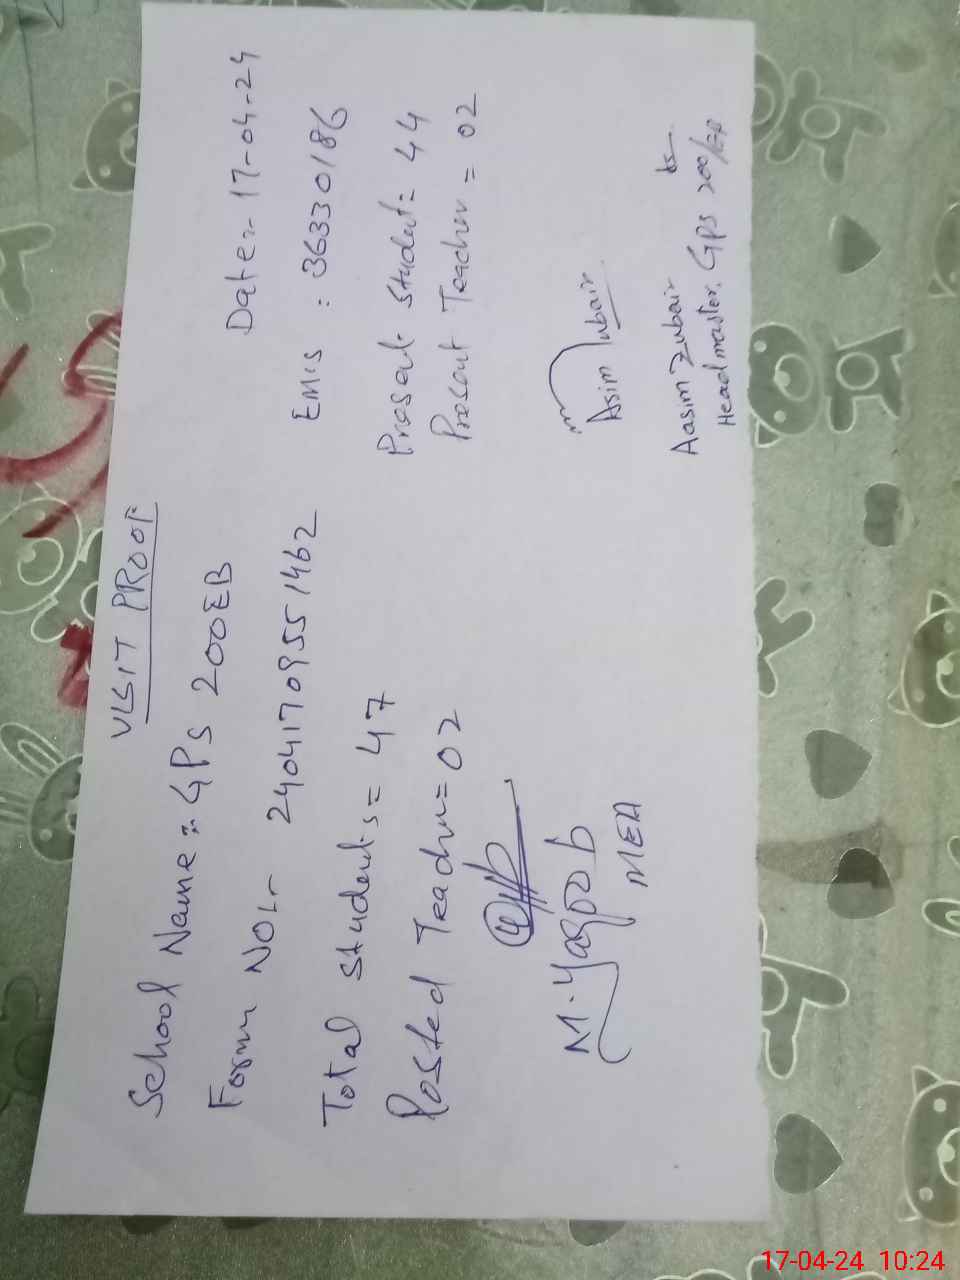 VISIT PROOF
School Name:- GPS 200EB
Date:- 17-04-24
Form No:- 24041709551462
EMIS : 36330186
Total Students = 47
Present Student = 44
Posted Teacher = 02
Present Teacher = 02
M. Yaqoob
MEA
Asim Zubair
Aasim Zubair
Headmaster, GPS 200/EB
17-04-24 10:24